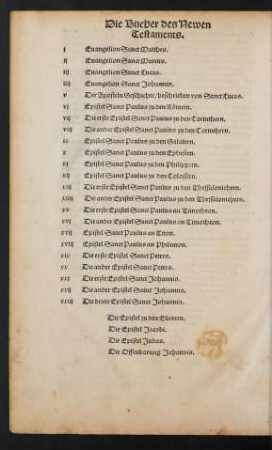 Die Bucher des Newen
Testaments.
j Euangelion Sanct Matthes.
ij Euangelion Sanct Marcus.
iij Euangelion Sanct Lucas.
iiij Euangelion Sanct Johannis.
v Der Aposteln Geschichte/ beschrieben von Sanct Lucas.
vj Epistel Sanct Paulus zu den Römern.
vij Die erste Epistel Sanct Paulus zu den Corinthern.
viij Die ander Epistel Sanct Paulus zu den Corinthern.
ix Epistel Sanct Paulus zu den Galatern.
x Epistel Sanct Paulus zu den Ephesern.
xj Epistel Sanct Paulus zu den Philippern.
xij Epistel Sanct Paulus zu den Colossern.
xiij Die erste Epistel Sanct Paulus zu den Thessalonichern.
xiiij Die ander Epistel Sanct Paulus zu den Thessalonichern.
xv Die erste Epistel Sanct Paulus an Timotheon.
xvj Die ander Epistel Sanct Paulus an Timotheon.
xvij Epistel Sanct Paulus an Titon.
xviij Epistel Sanct Paulus an Philemon.
xix Die erste Epistel Sanct Peters.
xx Die ander Epistel Sanct Peters.
xxj Die erste Epistel Sanct Johannis.
xxij Die ander Epistel Sanct Johannis.
xxiij Die dritte Epistel Sanct Johannis.
Die Epistel zu den Ebreern.
Die Epistel Jacobs.
Die Epistel Judas.
Die Offenbarung Johannis.